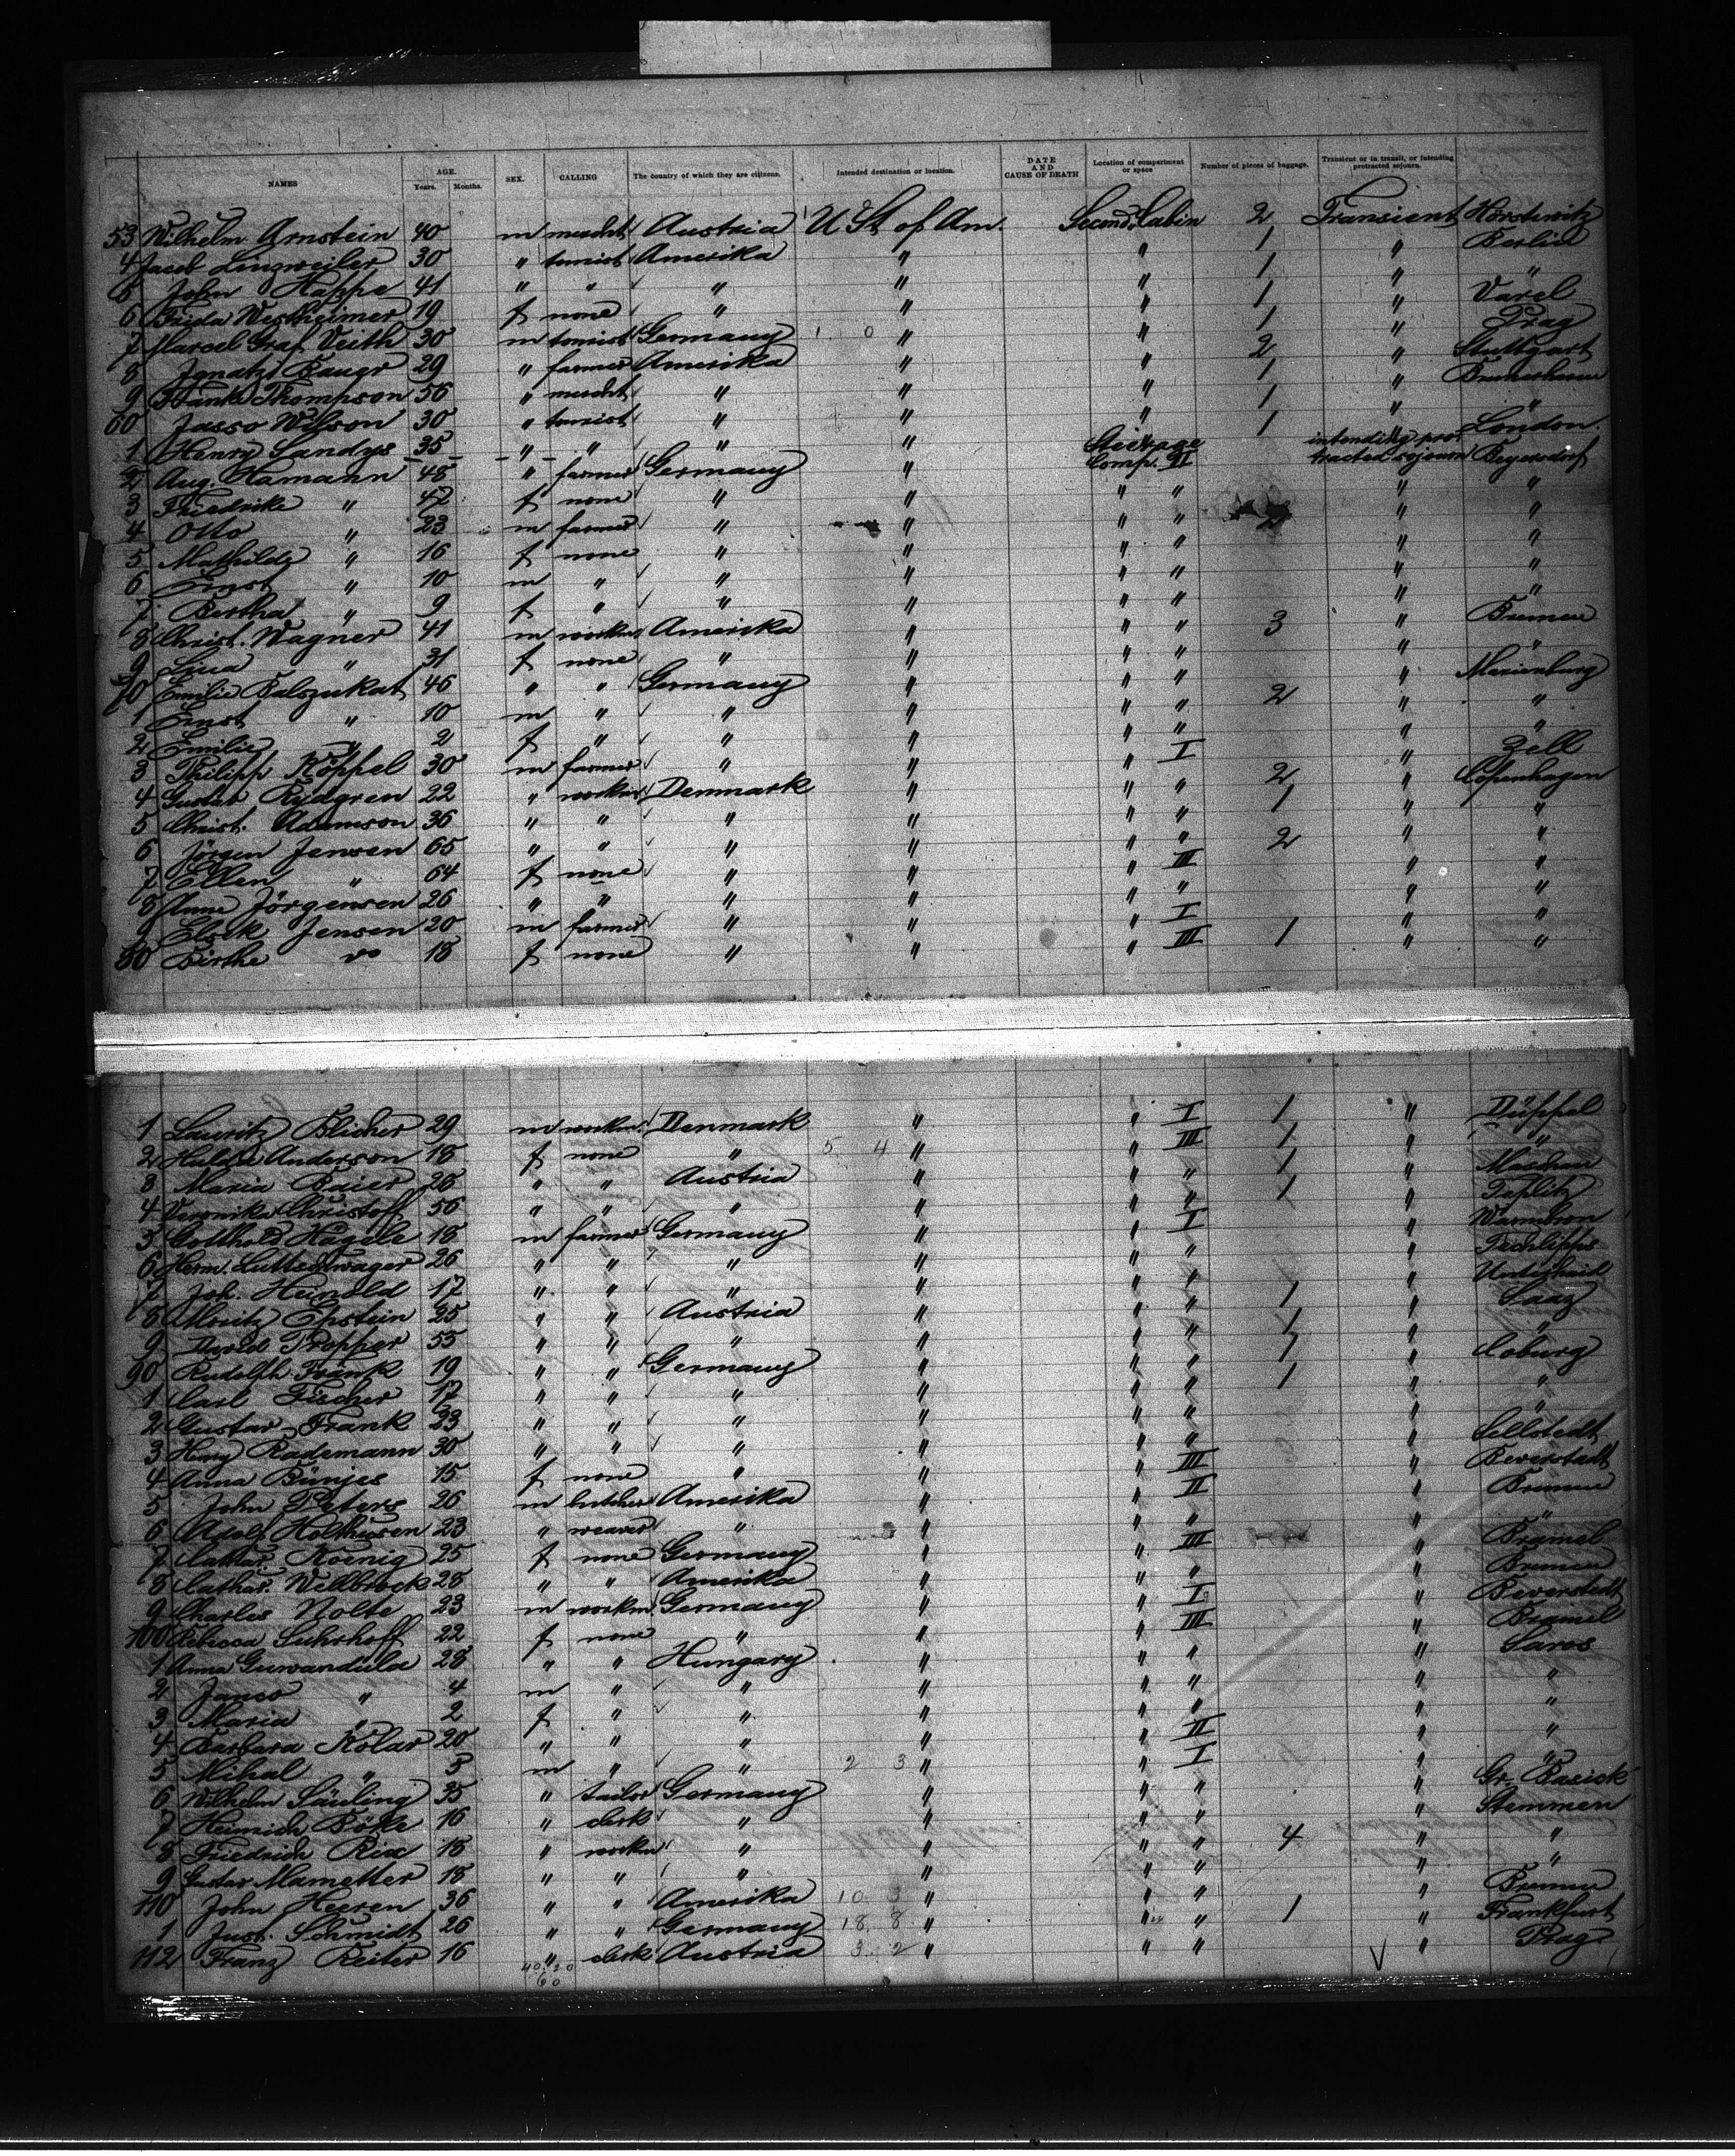 NAMES AGE. Years. Months. SEX. CALLING The country of which they are citizens. Intended destination or location. DATE AND CAUSE OF DEATH Location of compartment or space Number of pieces of baggage. Transient or in transit, or intending protracted sojourn.
53 Wilhelm Arnstein 40 m mercht Austria U St of Am. Second Cabin 2 Transient
4 Jacob Linzweiler 30 " tourist Amerika " " 1 " Berlin
5 John Happe 41 " " " " " 1 " "
6 Frida Westheimer 19 f none " " " 1 " Varel
7 Marcel Graf Veith 30 m tourist Germany " " 1 " Prag
8 Ignatz Baugr 29 " farmer Amerika " " 2 " Stuttgart
9 Thompson 56 " mercht " " " 1 " Bremerhaven
60 Jasso Wilson 30 " tourist " " " 1 " "
1 Henry Sandys 35 " " " " " 1 London.
2 Aug. Hamann 48 " farmer Germany " Steerage Comp. II intending protracted sojourn Beyersdorf
3 Friedrike " 42 f none " " " " " "
4 Otto " 23 m farmer " " " " 2 " "
5 Mathilde " 16 f none " " " " " "
6 Ernst " 10 m " " " " " " "
7 Bertha " 9 f " " " " " " "
8 Christ. Wagner 41 m workm Amerika " " " 3 " Bremen
9 Lina " 31 f none " " " " " "
70 Emilie Balszukat 46 " " Germany " " " 2 " Marienburg
1 Ernst " 10 m " " " " " " "
2 Emilie " 2 f " " " " " " "
3 Philipp Köppel 30 m farmer " " " I " Zell
4 Gustav Rydgren 22 " workm Denmark " " " 2 " Copenhagen
5 Christ. Adamson 36 " " " " " " 1 " "
6 Jörgen Jensen 65 " " " " " " 2 " "
7 Ellen " 64 f none " " " III " "
8 Anna Jörgensen 26 " " " " " " " "
9 Jensen 20 m farmer " " " I " "
80 Birthe do 18 f none " " " III 1 " "
1 Lauritz Blicher 29 m workm. Denmark " " I 1 " Düppel
2 Hulda Anderson 18 f none " 5 4 " " III 1 " "
3 Maria Baier 26 " " Austria " " " 1 " Maschau
4 Veronika Christoff 56 " " " " " " 1 " Taplitz
5 Gotthold Hägele 18 m farmer Germany " " I " Warmbron
6 Herm. Luttschwager 26 " " " " " " "
7 Joh. Heinold 17 " " " " " " "
8 Moritz Epstein 25 " " Austria " " " 1 " Saaz
9 David Propper 55 " " " " " " 1 " "
90 Rudolph Frank 19 " " Germany " " " 1 " Coburg
1 Carl Fischer 17 " " " " " " 1 " "
2 Gustav Frank 23 " " " " " " " "
3 Heiny Rademann 30 " " " " " " " Sellstedt
4 Anna Bünjes 15 f none " " " III " Beverstedt
5 John Peters 26 m butcher Amerika " " II " Bremen
6 Adolf Holthusen 23 " weaver " " " " " "
7 Cathar. Koenig 25 f none Germany " " III " Bramel
8 Cathar. Wellbrock 28 " " Amerika " " " " Bremen
9 Charles Nolte 23 m workm. Germany " " I " Beverstedt
100 Rebecca Suhrhoff 22 f none " " " III " Bramel
1 Anna Guwandula 28 " " Hungary " " " " Saros
2 Janco " 4 m " " " " " " "
3 Maria " 2 f " " " " " " "
4 Barbara Kolar 20 " " " " " II " "
5 Mihal " 3 m " " 2 3 " " I " "
6 Wilhelm Säuling 35 " tailor Germany " " " " Gr. Rasick
7 Heinrich Böke 16 " clerk " " " " " Stemmen
8 Friedrich Rix 18 " workm " " " " 4 " "
9 Gustav Mametter 18 " " " " " " " "
110 John Heeren 36 " " Amerika 10 3 " " " " Bremen
1 Just. Schmidt 26 " " Germany 18 8 " " " 1 " Frankfurt
112 Franz Reiter 16 " clerk Austria 3 2 " " " " Prag
40 20
60